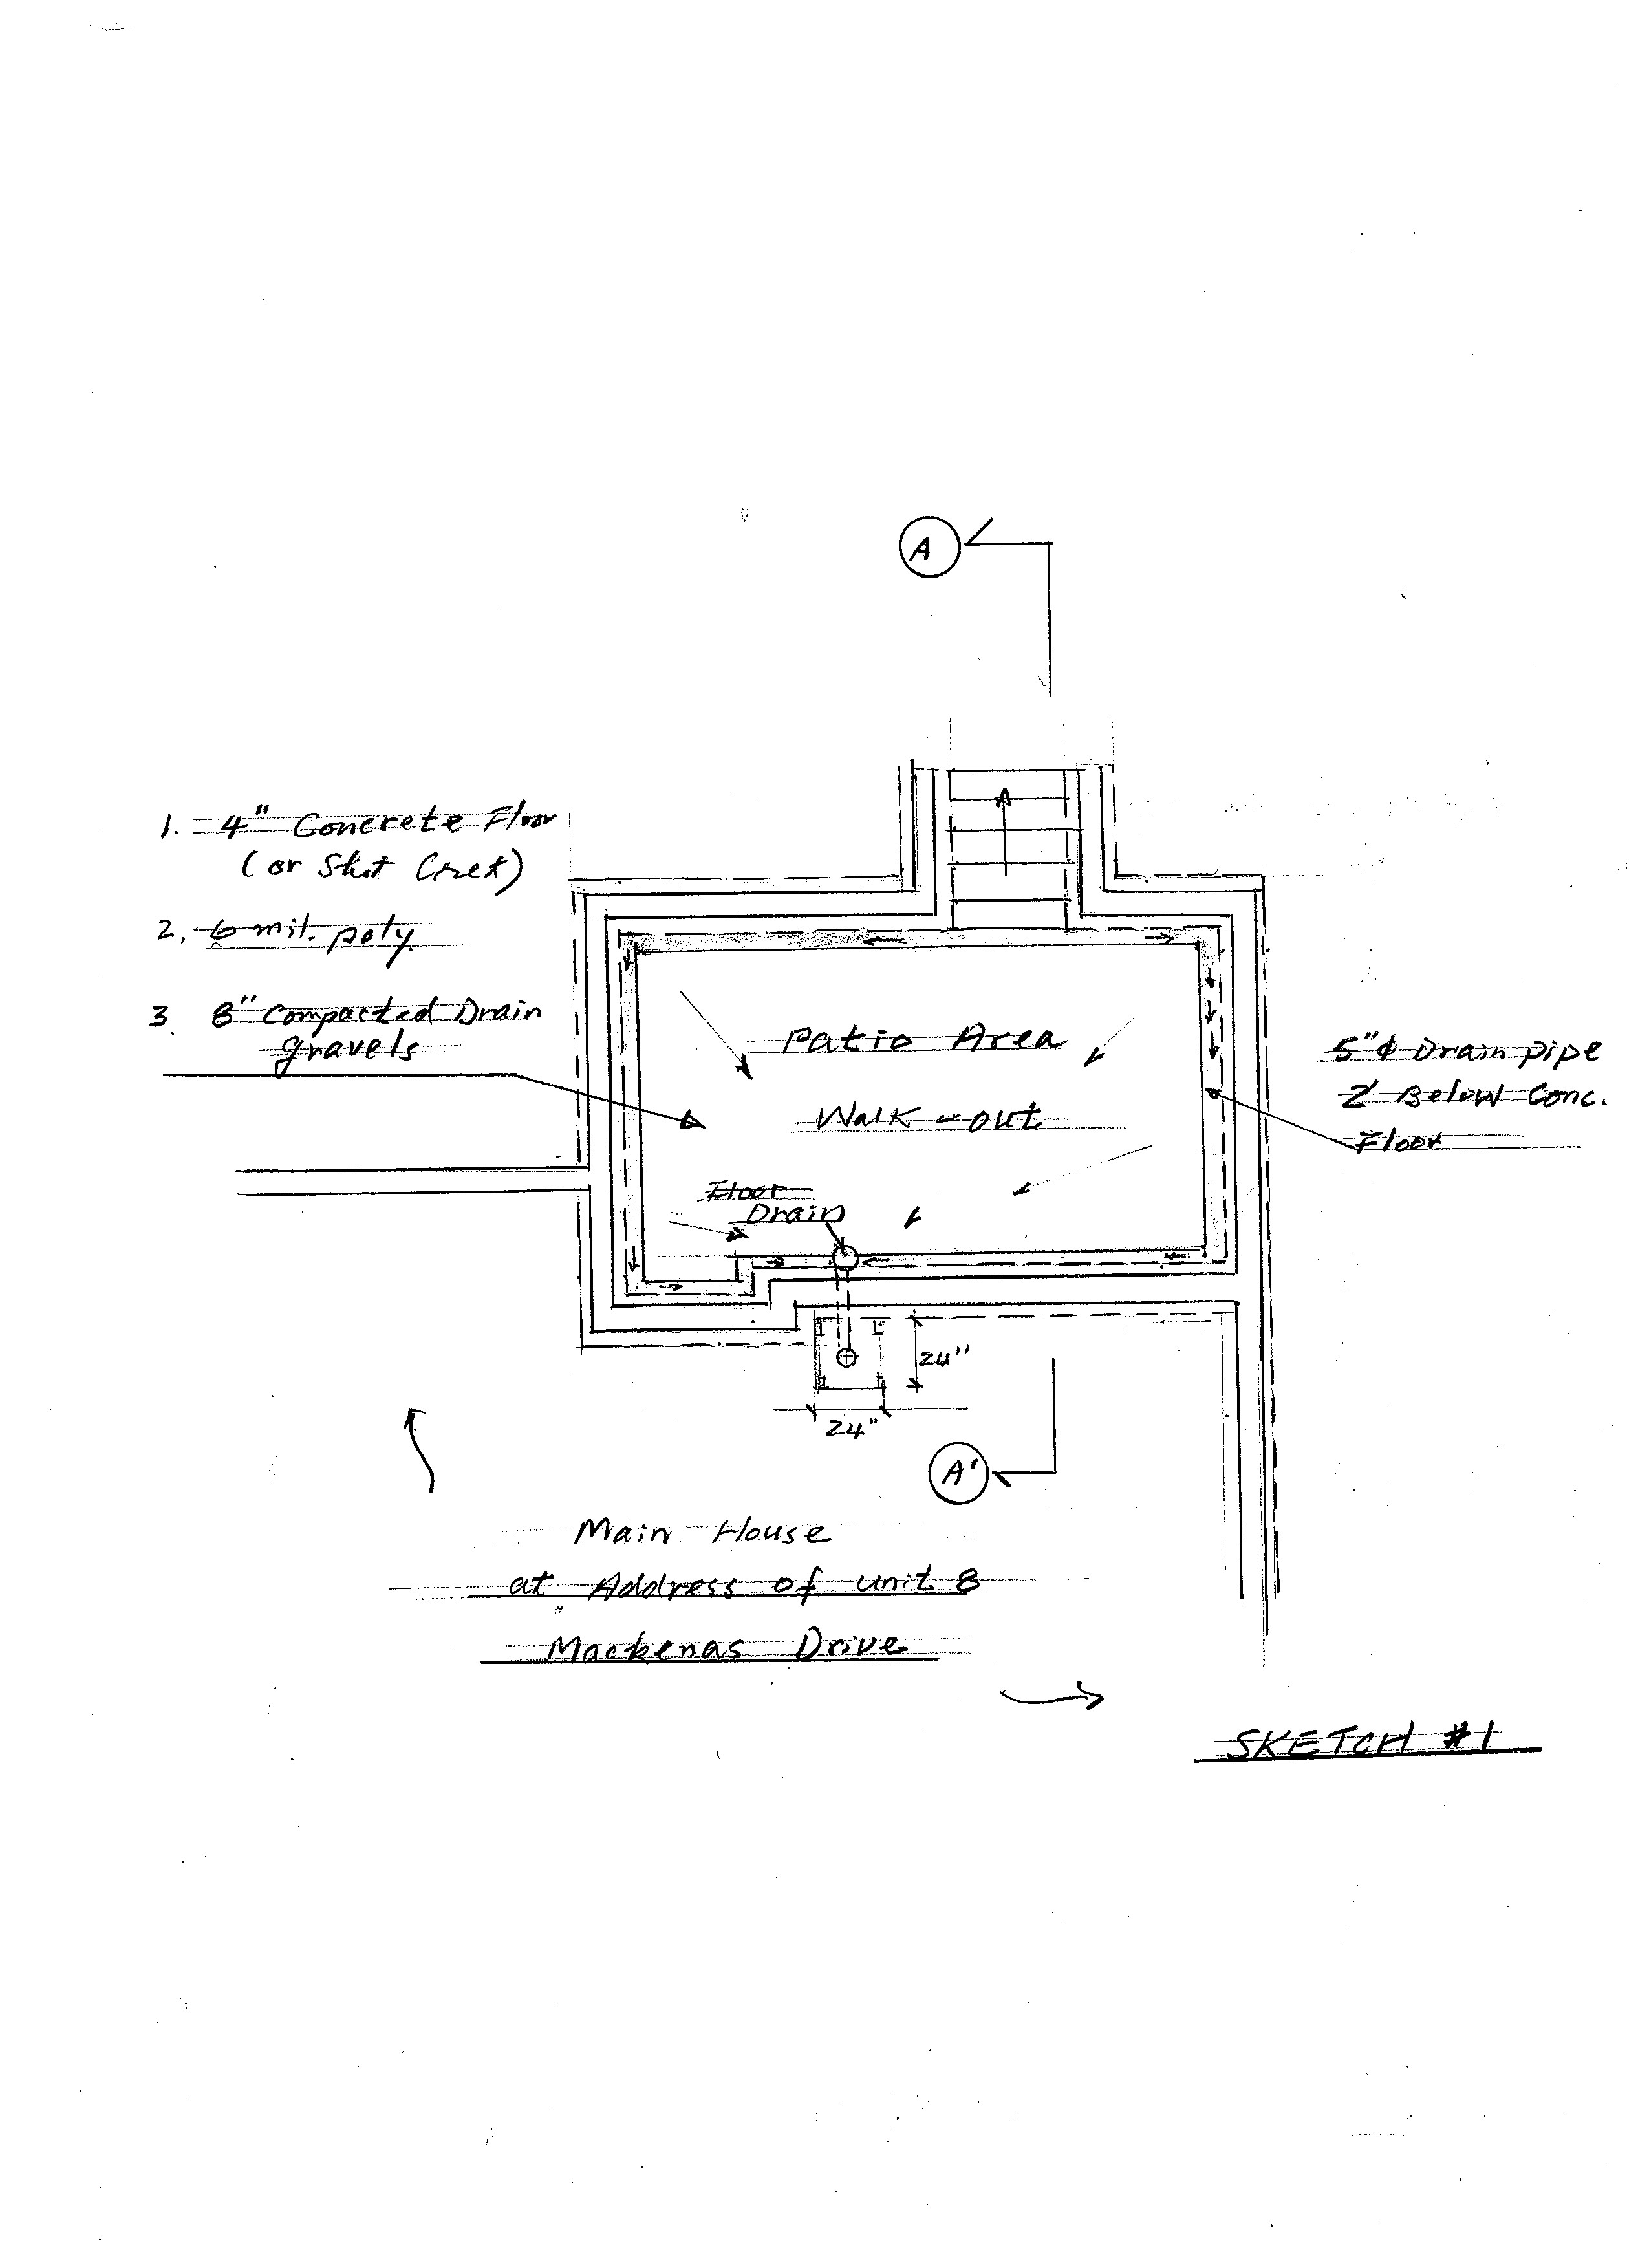 A
1. 4" Concrete Floor
(or Shot Cret)
2. 6 mil. poly.
3 8" Compacted Drain
gravels
Patio Area
Walk-out
5"ϕ Drain pipe
2' Below Conc.
Floor
Floor
Drain
24"
24"
A'
Main House
at Address of unit 8
Mackenas Drive
SKETCH #1